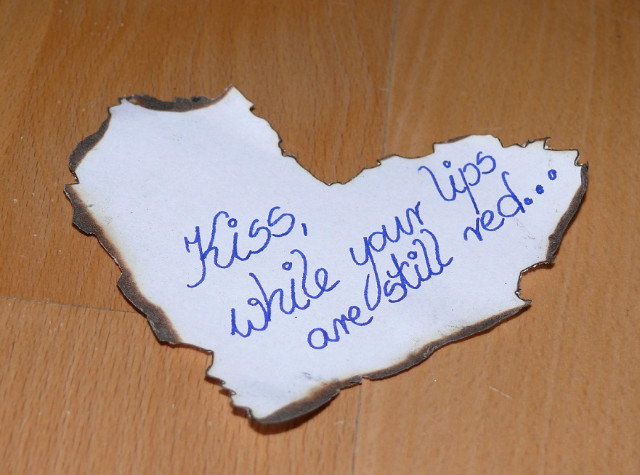 Kiss,
while your lips
are still red...